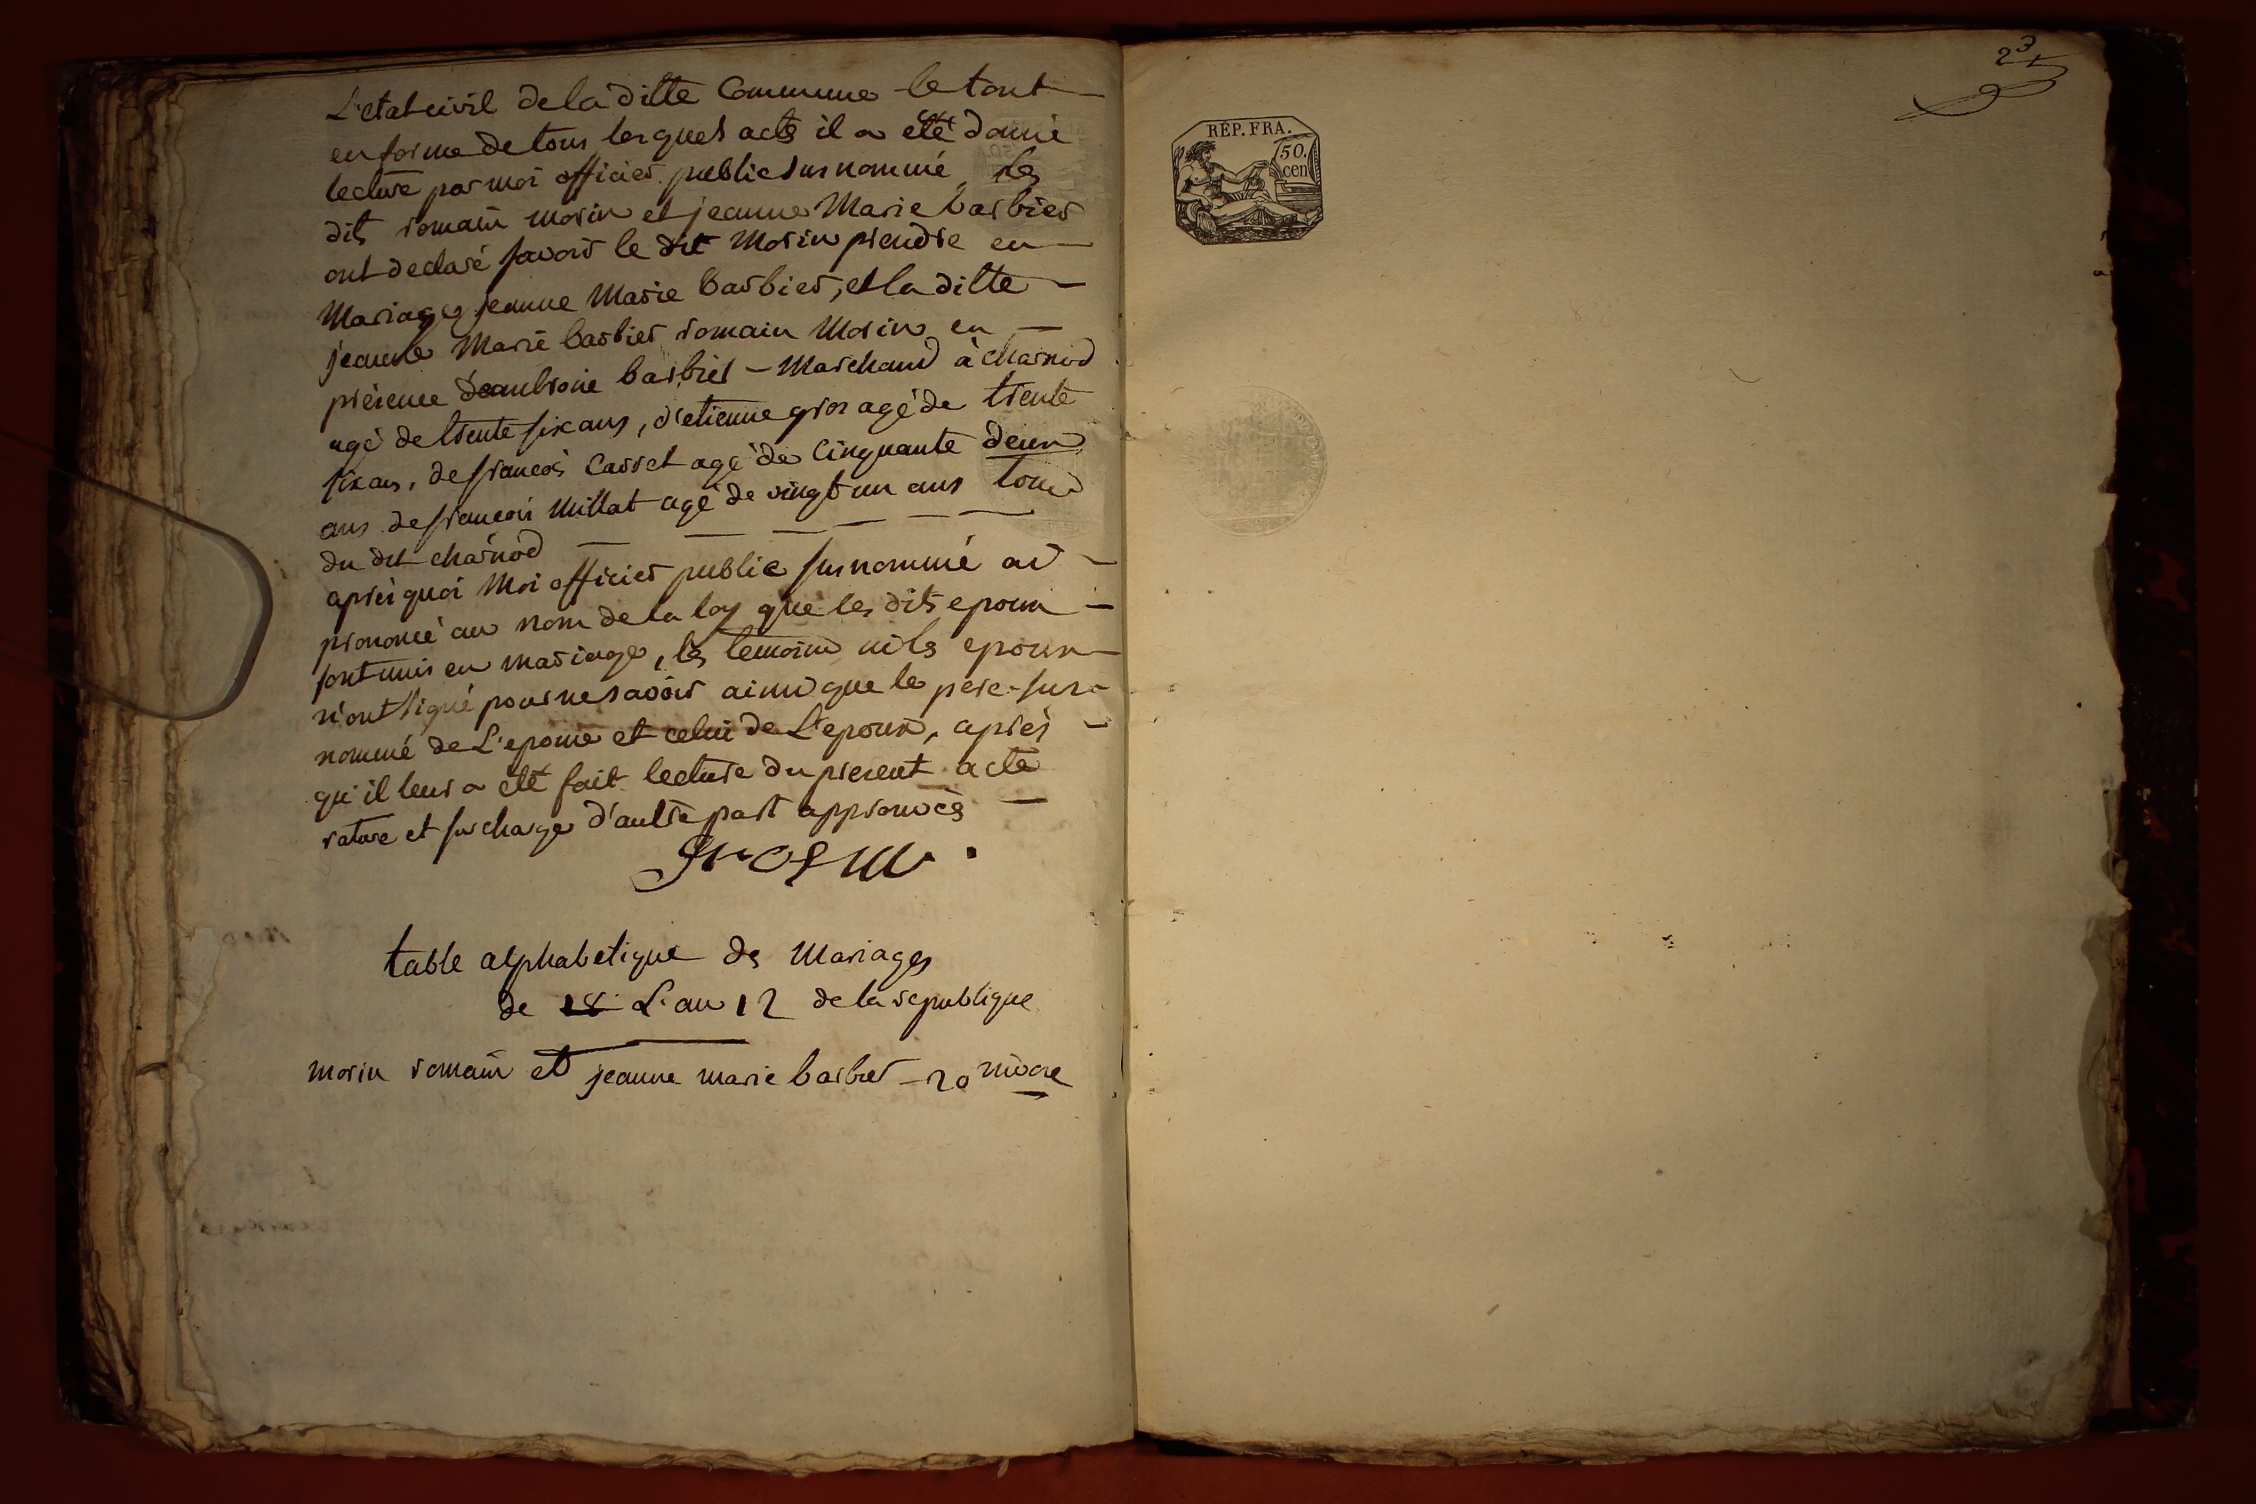 L'etat civil de la ditte Commune le tout
en forme de tous lesquels acte il a été donné
lecture par moi officier public susnommé les
dits romain morin et jeanne Marie barbier
ont declaré savoir le dit Morin prendre en
Mariage jeanne Marie barbier, et la ditte
jeanne Marie barbier romain Morin en
présence d'eambroise barbier - Marchand à charnod
agé de trente six ans, d'etienne gros agé de trente
six ans, de francois Carret agé de cinquante deux
ans de francois Millat agé de vingt un ans tous
du dit charnod
après quoi Moi officier public susnommé ai
prononcé au nom de la loy que les dits epoux
sont unis en mariage, les temoins ni les epoux
n'ont signé pour ne savoir ainsi que le pere sus-
nommé de L'epouse et celui de L'epoux, après
qu'il leur a été fait lecture du present acte
rature et surcharge d'autre part approuvés
table alphabetique des Mariages
de L'an 12 de la republique
morin romain et jeanne marie barbier - 20 nivose
23
RÉP. FRA.
50.
cen